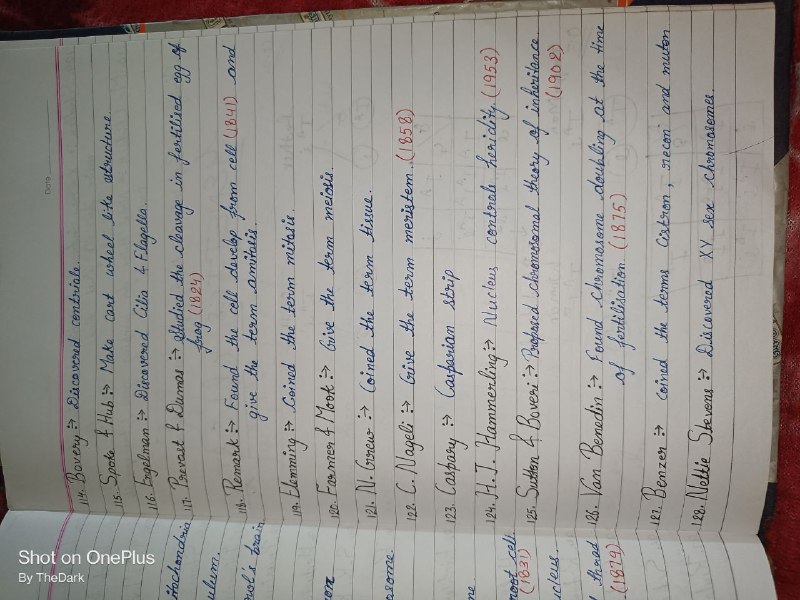 Date
114. Bovery :→ Discovered centriole.
115. Spoke & Hub :→ Make cart wheel like structure.
116. Engelman :→ Discovered Cilia & Flagella.
117. Prevost & Dumas :→ Studied the cleavage in fertilised egg of
frog (1824)
118. Remark :→ Found the cell develop from cell (1841) and
give the term amitosis.
119. Flemming :→ Coined the term mitosis.
120. Farmer & Moot :→ Give the term meiosis.
121. N. Grew :→ Coined the term tissue.
122. C. Nageli :→ Give the term meristem. (1858)
123. Caspary :→ Casparian strip
124. H.J. Hammerling :→ Nucleus controls heridity. (1953)
125. Sutton & Boveri :→ Proposed chromosomal theory of inheritance
(1902)
126. Van Benedin :→ Found chromosome doubling at the time
of fertilisation (1875)
127. Benzer :→ coined the terms Cistron, recon and muton
128. Nettie Stevens :→ Discovered XY sex chromosomes.
tochondria
ulum.
brain
some
root cell
(1831)
ucleus
thread
(1879)
Shot on OnePlus
By TheDark